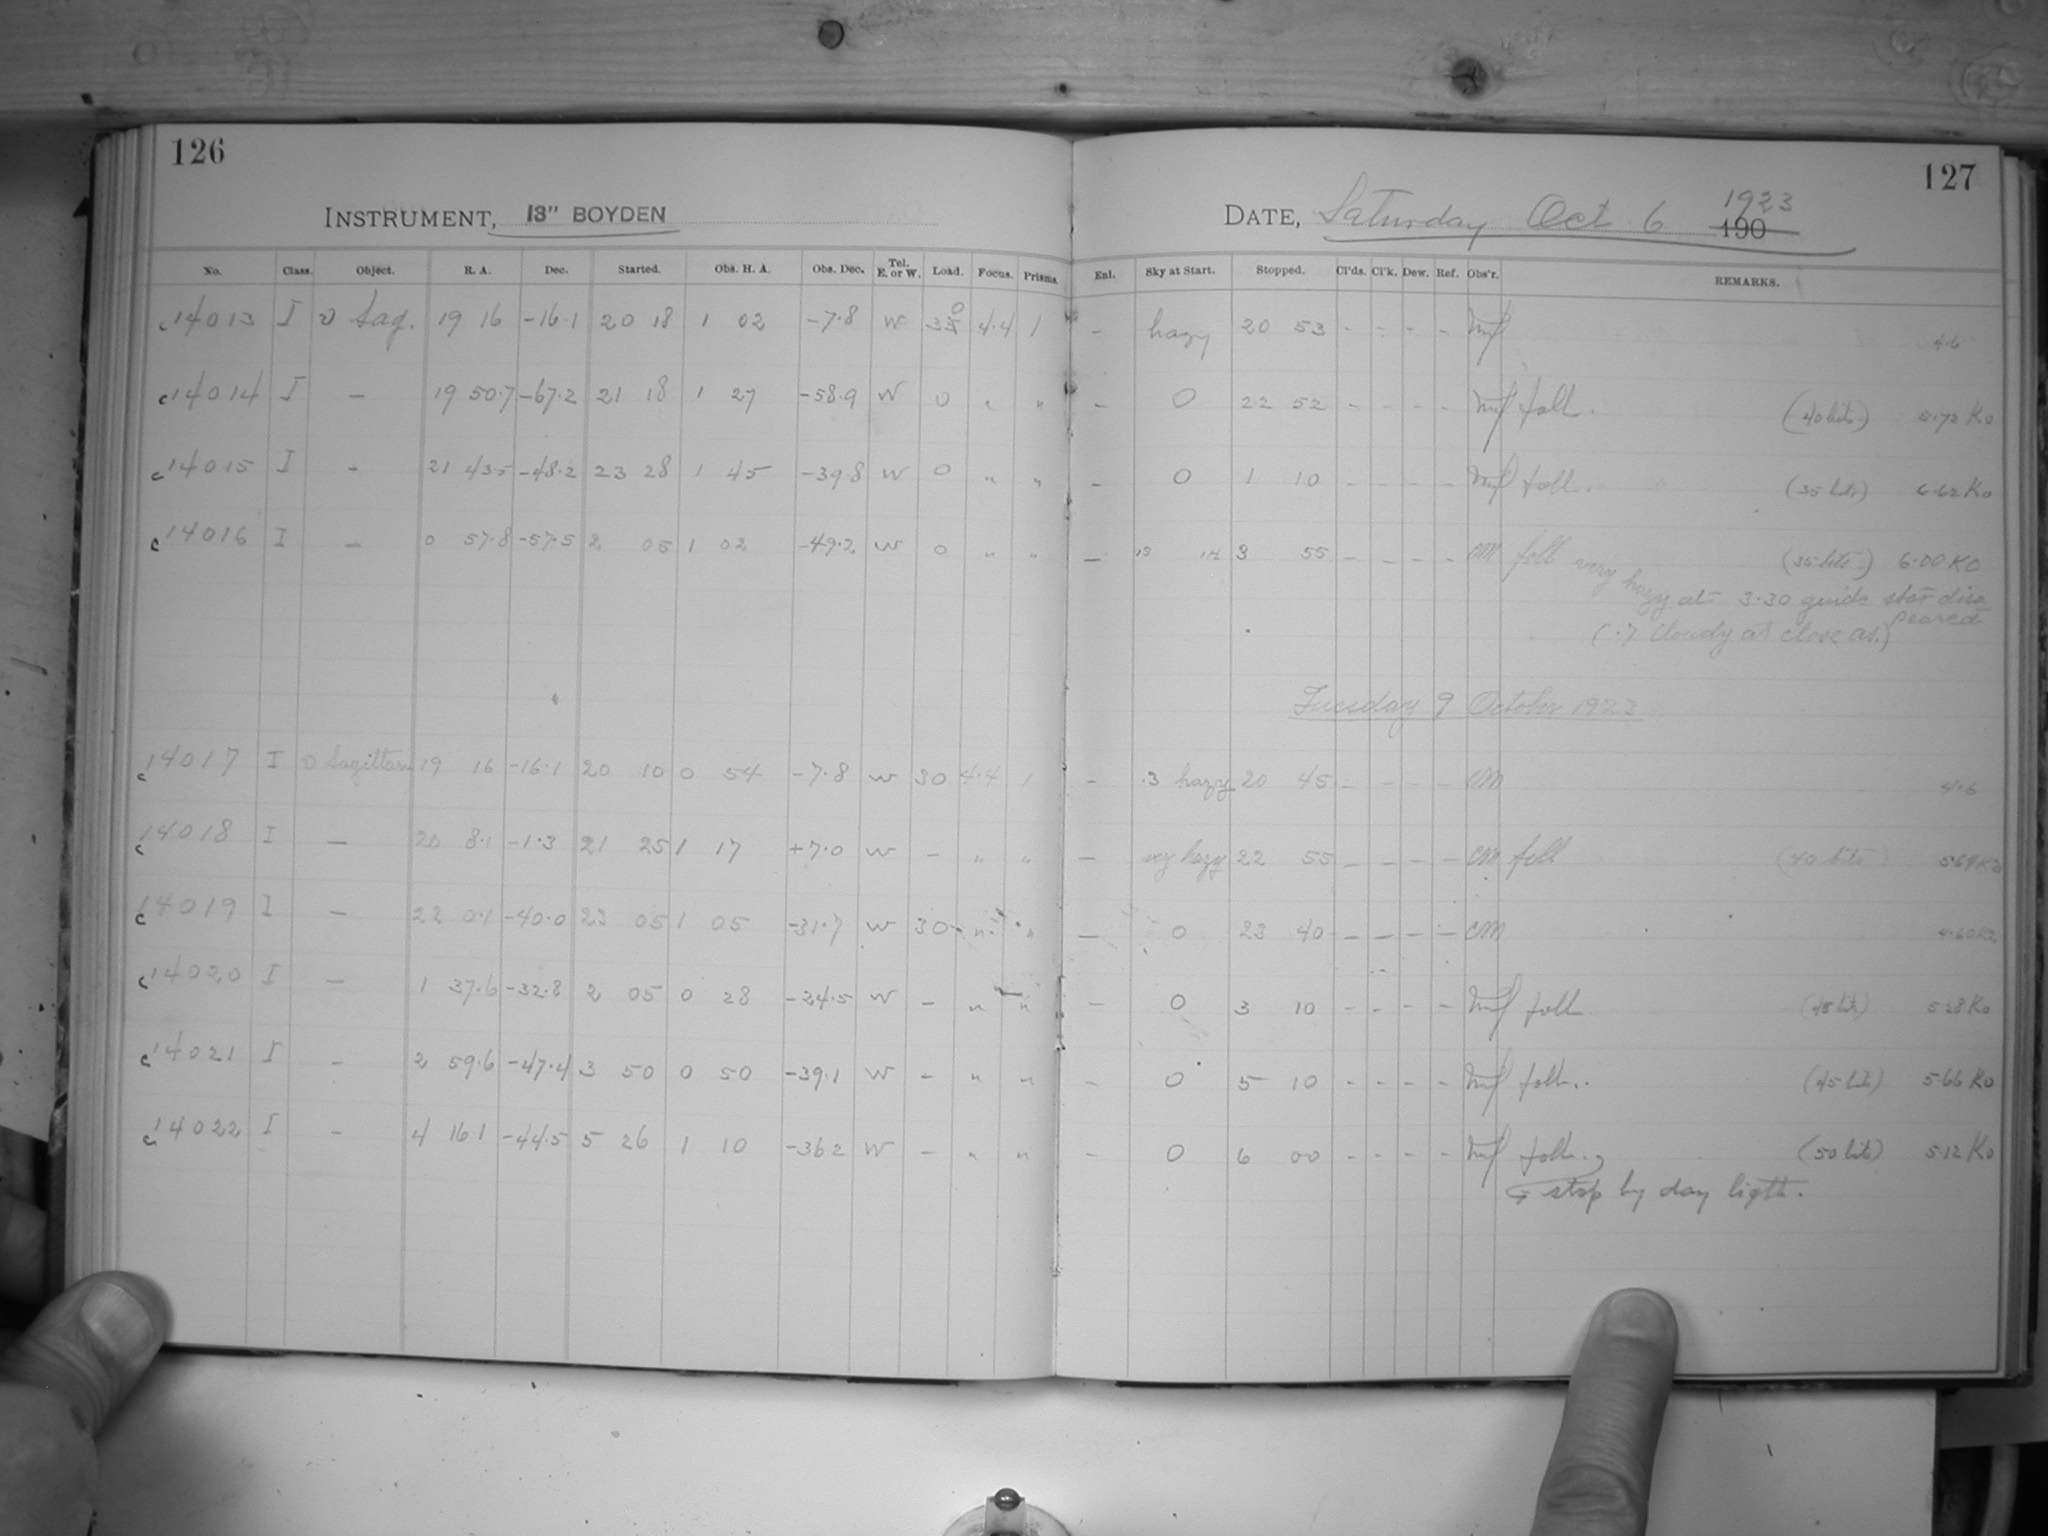 126
127
INSTRUMENT, 13" BOYDEN
DATE, Saturday Oct 6 1923 190
No. Class. Object. R. A. Dec. Started. Obs. H. A. Obs. Dec. Tel. E. or W. Load. Focus. Prisms. Enl. Sky at Start. Stopped. Cl'ds. Cl'k. Dew. Ref. Obs'r. REMARKS.
c14013 I υ Sag. 19 16 -16.1 20 18 1 02 -7.8 W 30 4.4 1 - hazy 20 53 - - - - 4.6
c14014 I - 19 50.7 -67.2 21 18 1 27 -58.9 W 0 " " - 0 22 52 - - - - foll. (40 bits) 5.72 K0
c14015 I - 21 43.5 -48.2 23 28 1 45 -39.8 W 0 " " - 0 1 10 - - - - foll. (35 bits) 6.62 K0
c14016 I - 0 57.8 -57.5 2 05 1 02 -49.2 W 0 " " - 3 55 - - - - CM foll very hazy at 3.30 guide star disa peared (35 bits) 6.00 K0
(.7 cloudy at close as.)
Tuesday 9 October 1923
c14017 I υ Sagittarii 19 16 -16.1 20 10 0 54 -7.8 W 30 4.4 1 - .3 hazy 20 45 - - - - CM 4.6
c14018 I - 20 8.1 -1.3 21 25 1 17 +7.0 W - " " - very hazy 22 55 - - - - CM foll (40 bits) 5.69 K0
c14019 I - 22 0.1 -40.0 23 05 1 05 -31.7 W 30 - " " - 0 23 40 - - - - CM
c14020 I - 1 37.6 -32.8 2 05 0 28 -24.5 W - " " - 0 3 10 - - - - foll (45 bits) 5.28 K0
c14021 I - 2 59.6 -47.4 3 50 0 50 -39.1 W - " " - 0 5 10 - - - - foll. (45 bits) 5.66 K0
c14022 I - 4 16.1 -44.5 5 26 1 10 -36.2 W - " " - 0 6 00 - - - - foll. (50 bits) 5.12 K0
stop by day ligth.